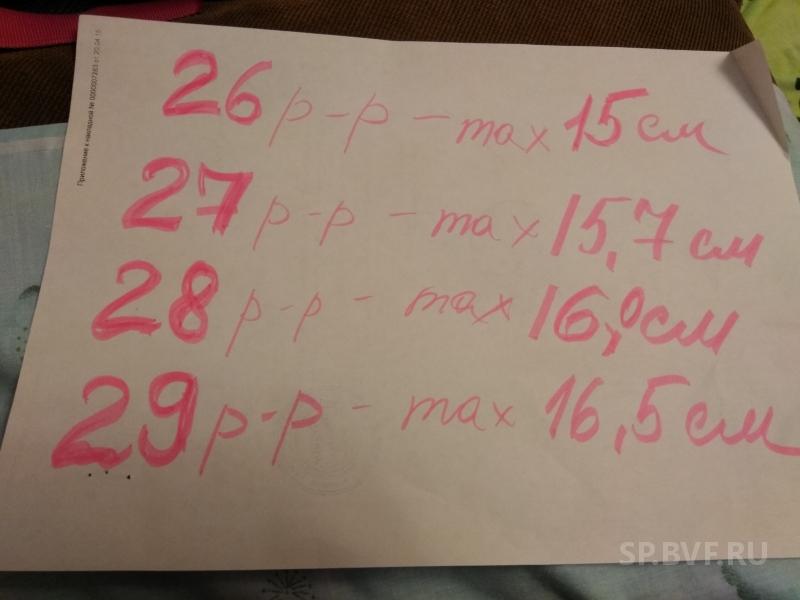 Приложение к накладной № 0000007263 от 20.04.15
26 р-р - max 15 см
27 р-р - max 15,7 см
28 р-р - max 16,0 см
29 р-р - max 16,5 см
SP.BVF.RU